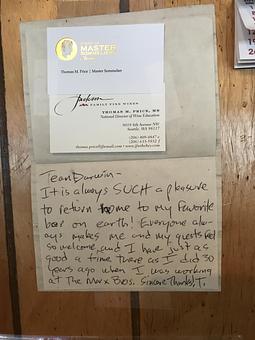 MASTER
SOMMELIER
Thomas M. Price | Master Sommelier
Jackson
FAMILY FINE WINES
THOMAS M. PRICE, MS
National Director of Wine Education
Seattle, WA
Team Darwin-
It is always SUCH a pleasure
to return home to my favorite
bar on earth! Everyone alw-
ays makes me and my guests feel
so welcome, and I have just as
good a time there as I did 30
years ago when I was working
at The Marx Bros. Sincere Thanks, T.